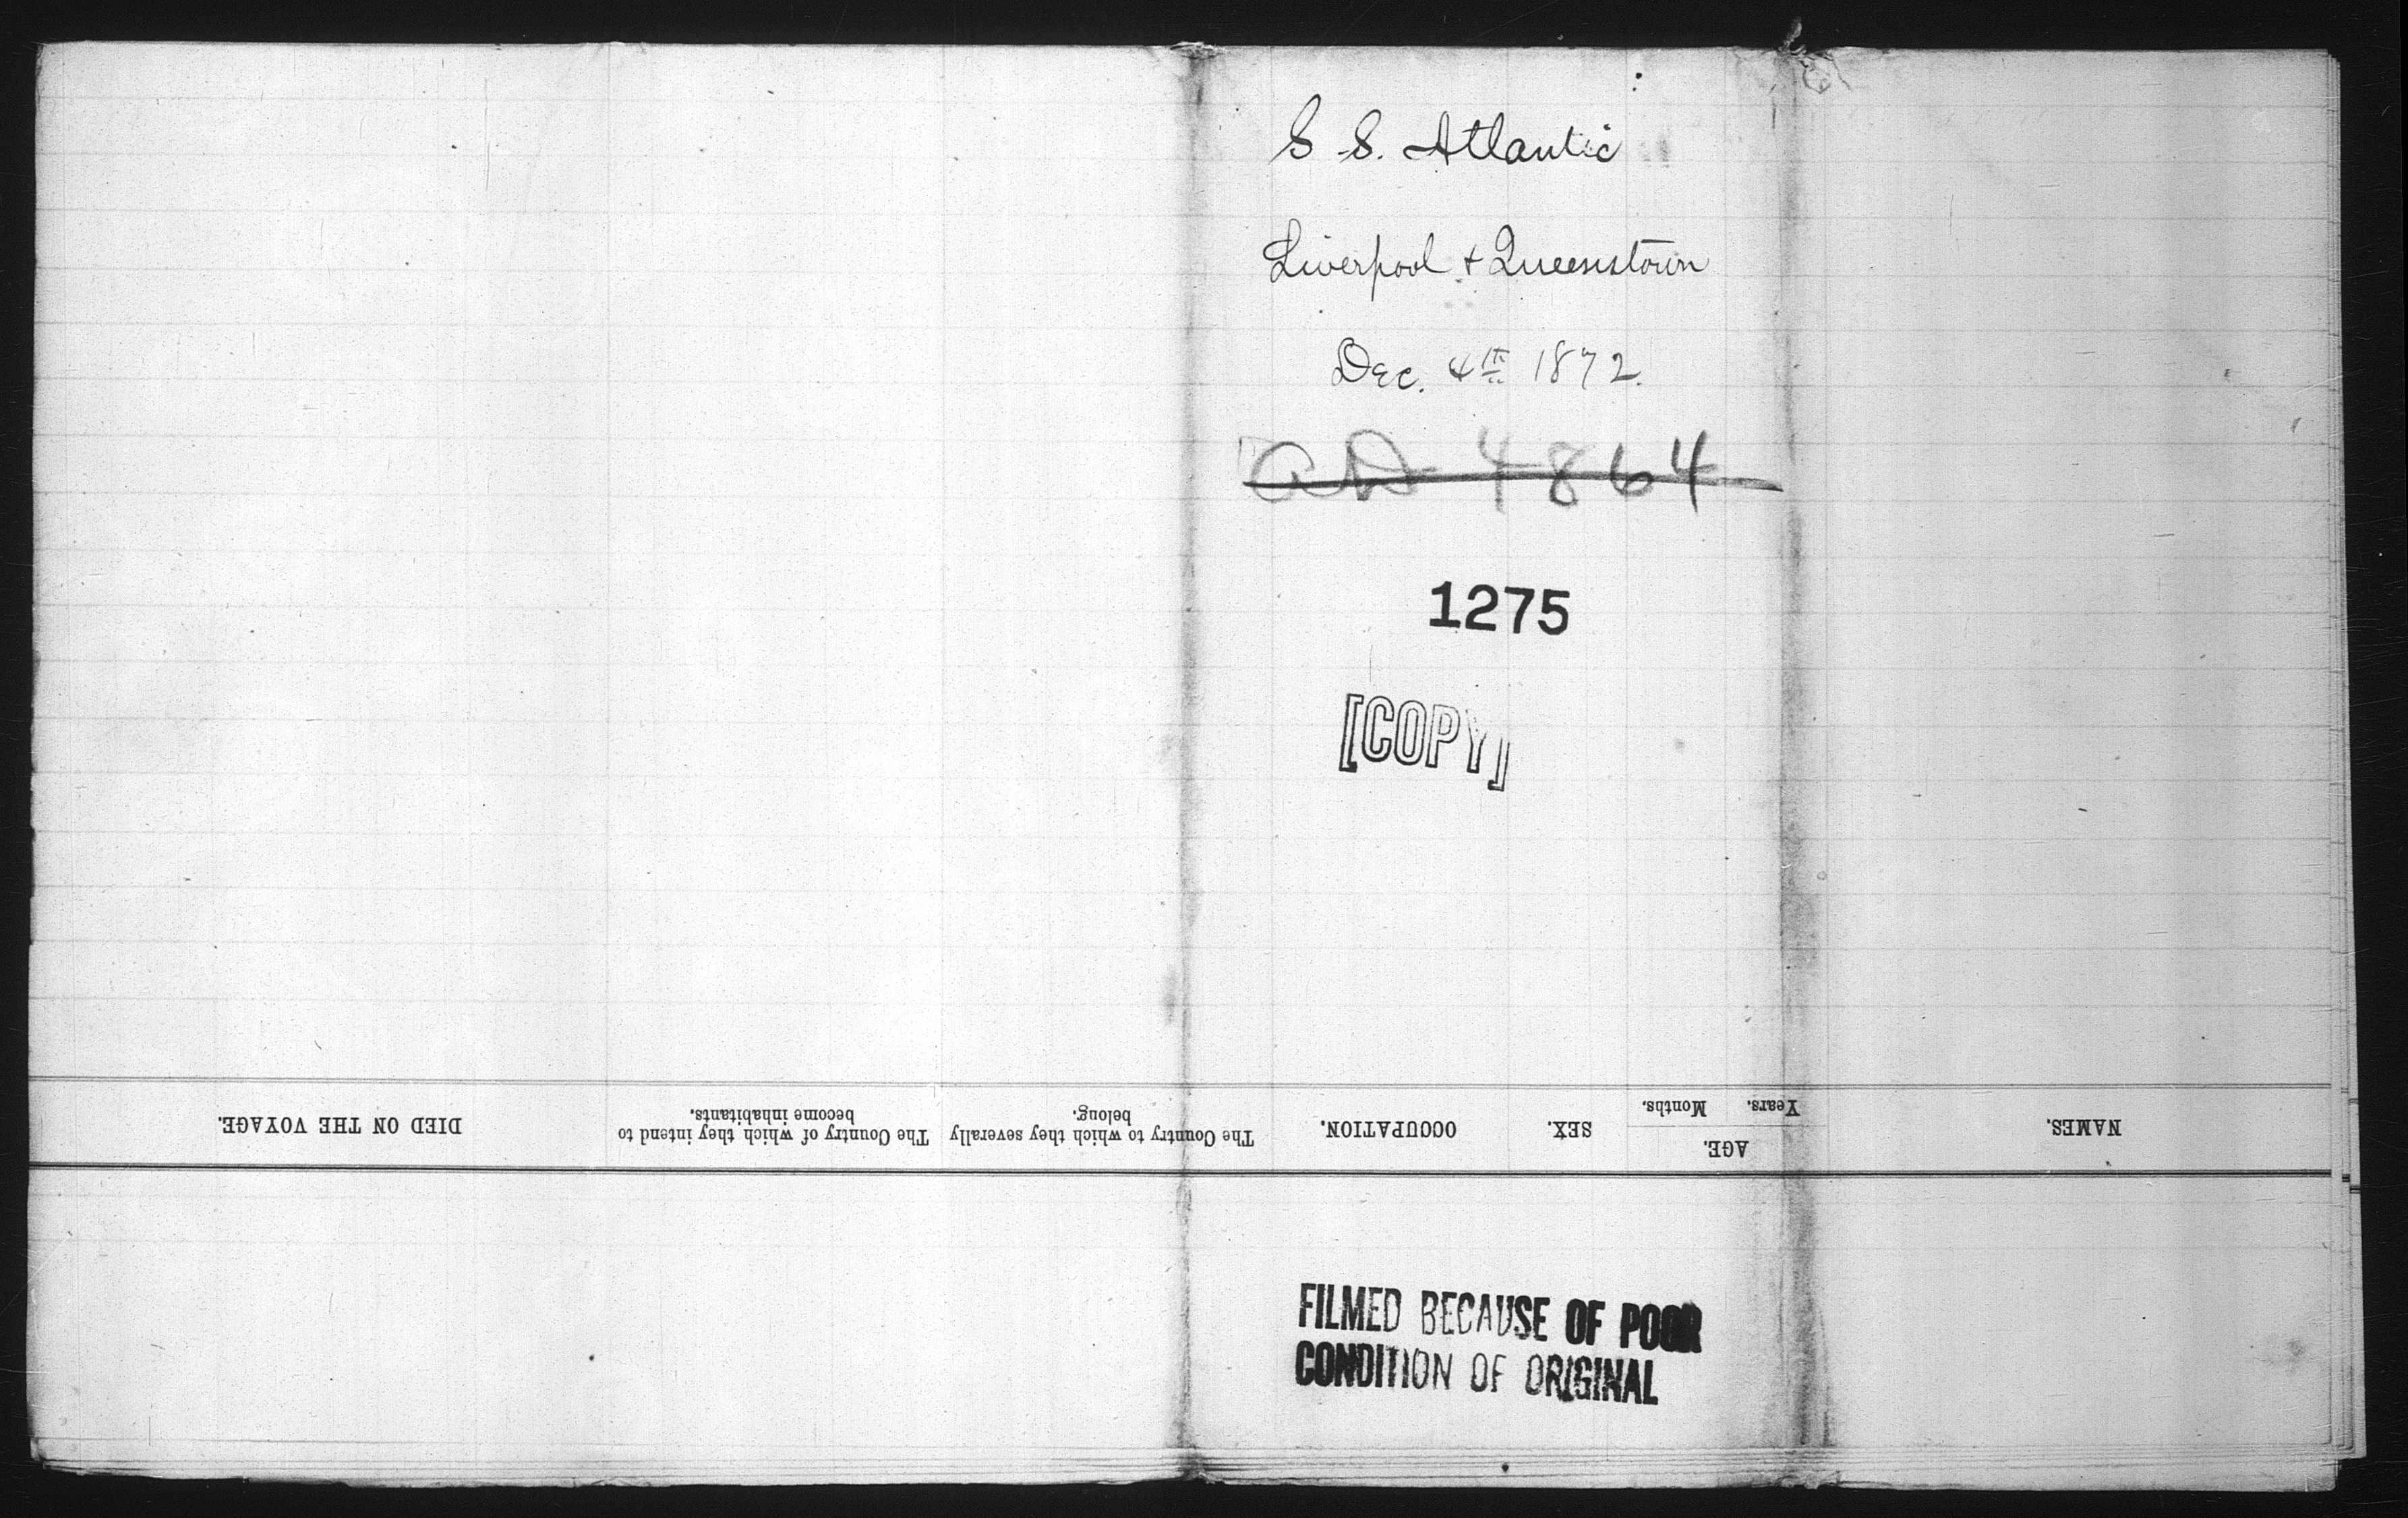 S. S. Atlantic
Liverpool + Queenstown
Dec. 4th 1872.
AD 4864
1275
[COPY]
NAMES.
AGE.
Years. Months.
SEX.
OCCUPATION.
The Country to which they severally
belong.
The Country of which they intend to
become inhabitants.
DIED ON THE VOYAGE.
FILMED BECAUSE OF POOR
CONDITION OF ORIGINAL